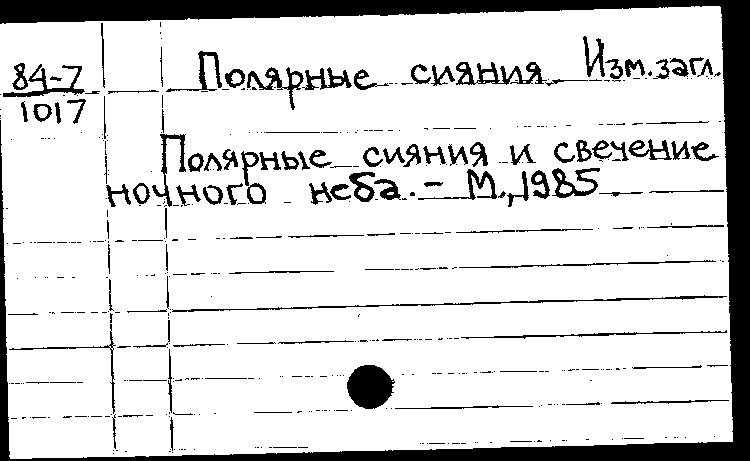 84-7
1017
Полярные сияния Изм. загл.
Полярные сияния и свечение
ночного неба. – М., 1985.